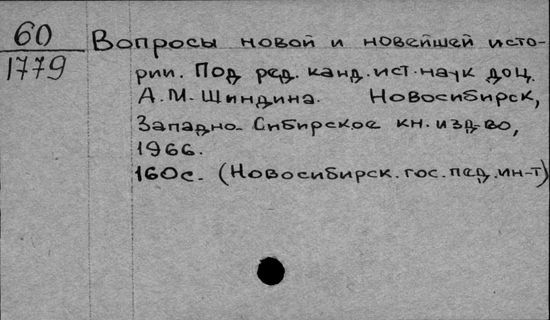 60
1779
Вопросы новой и новейшей исто-
рии. Под ред. канд. ист. наук доц.
А.М. Шиндина. Новосибирск,
Западно-Сибирское кн. изд-во,
1966.
160с. (Новосибирск. гос. пед. ин-т)